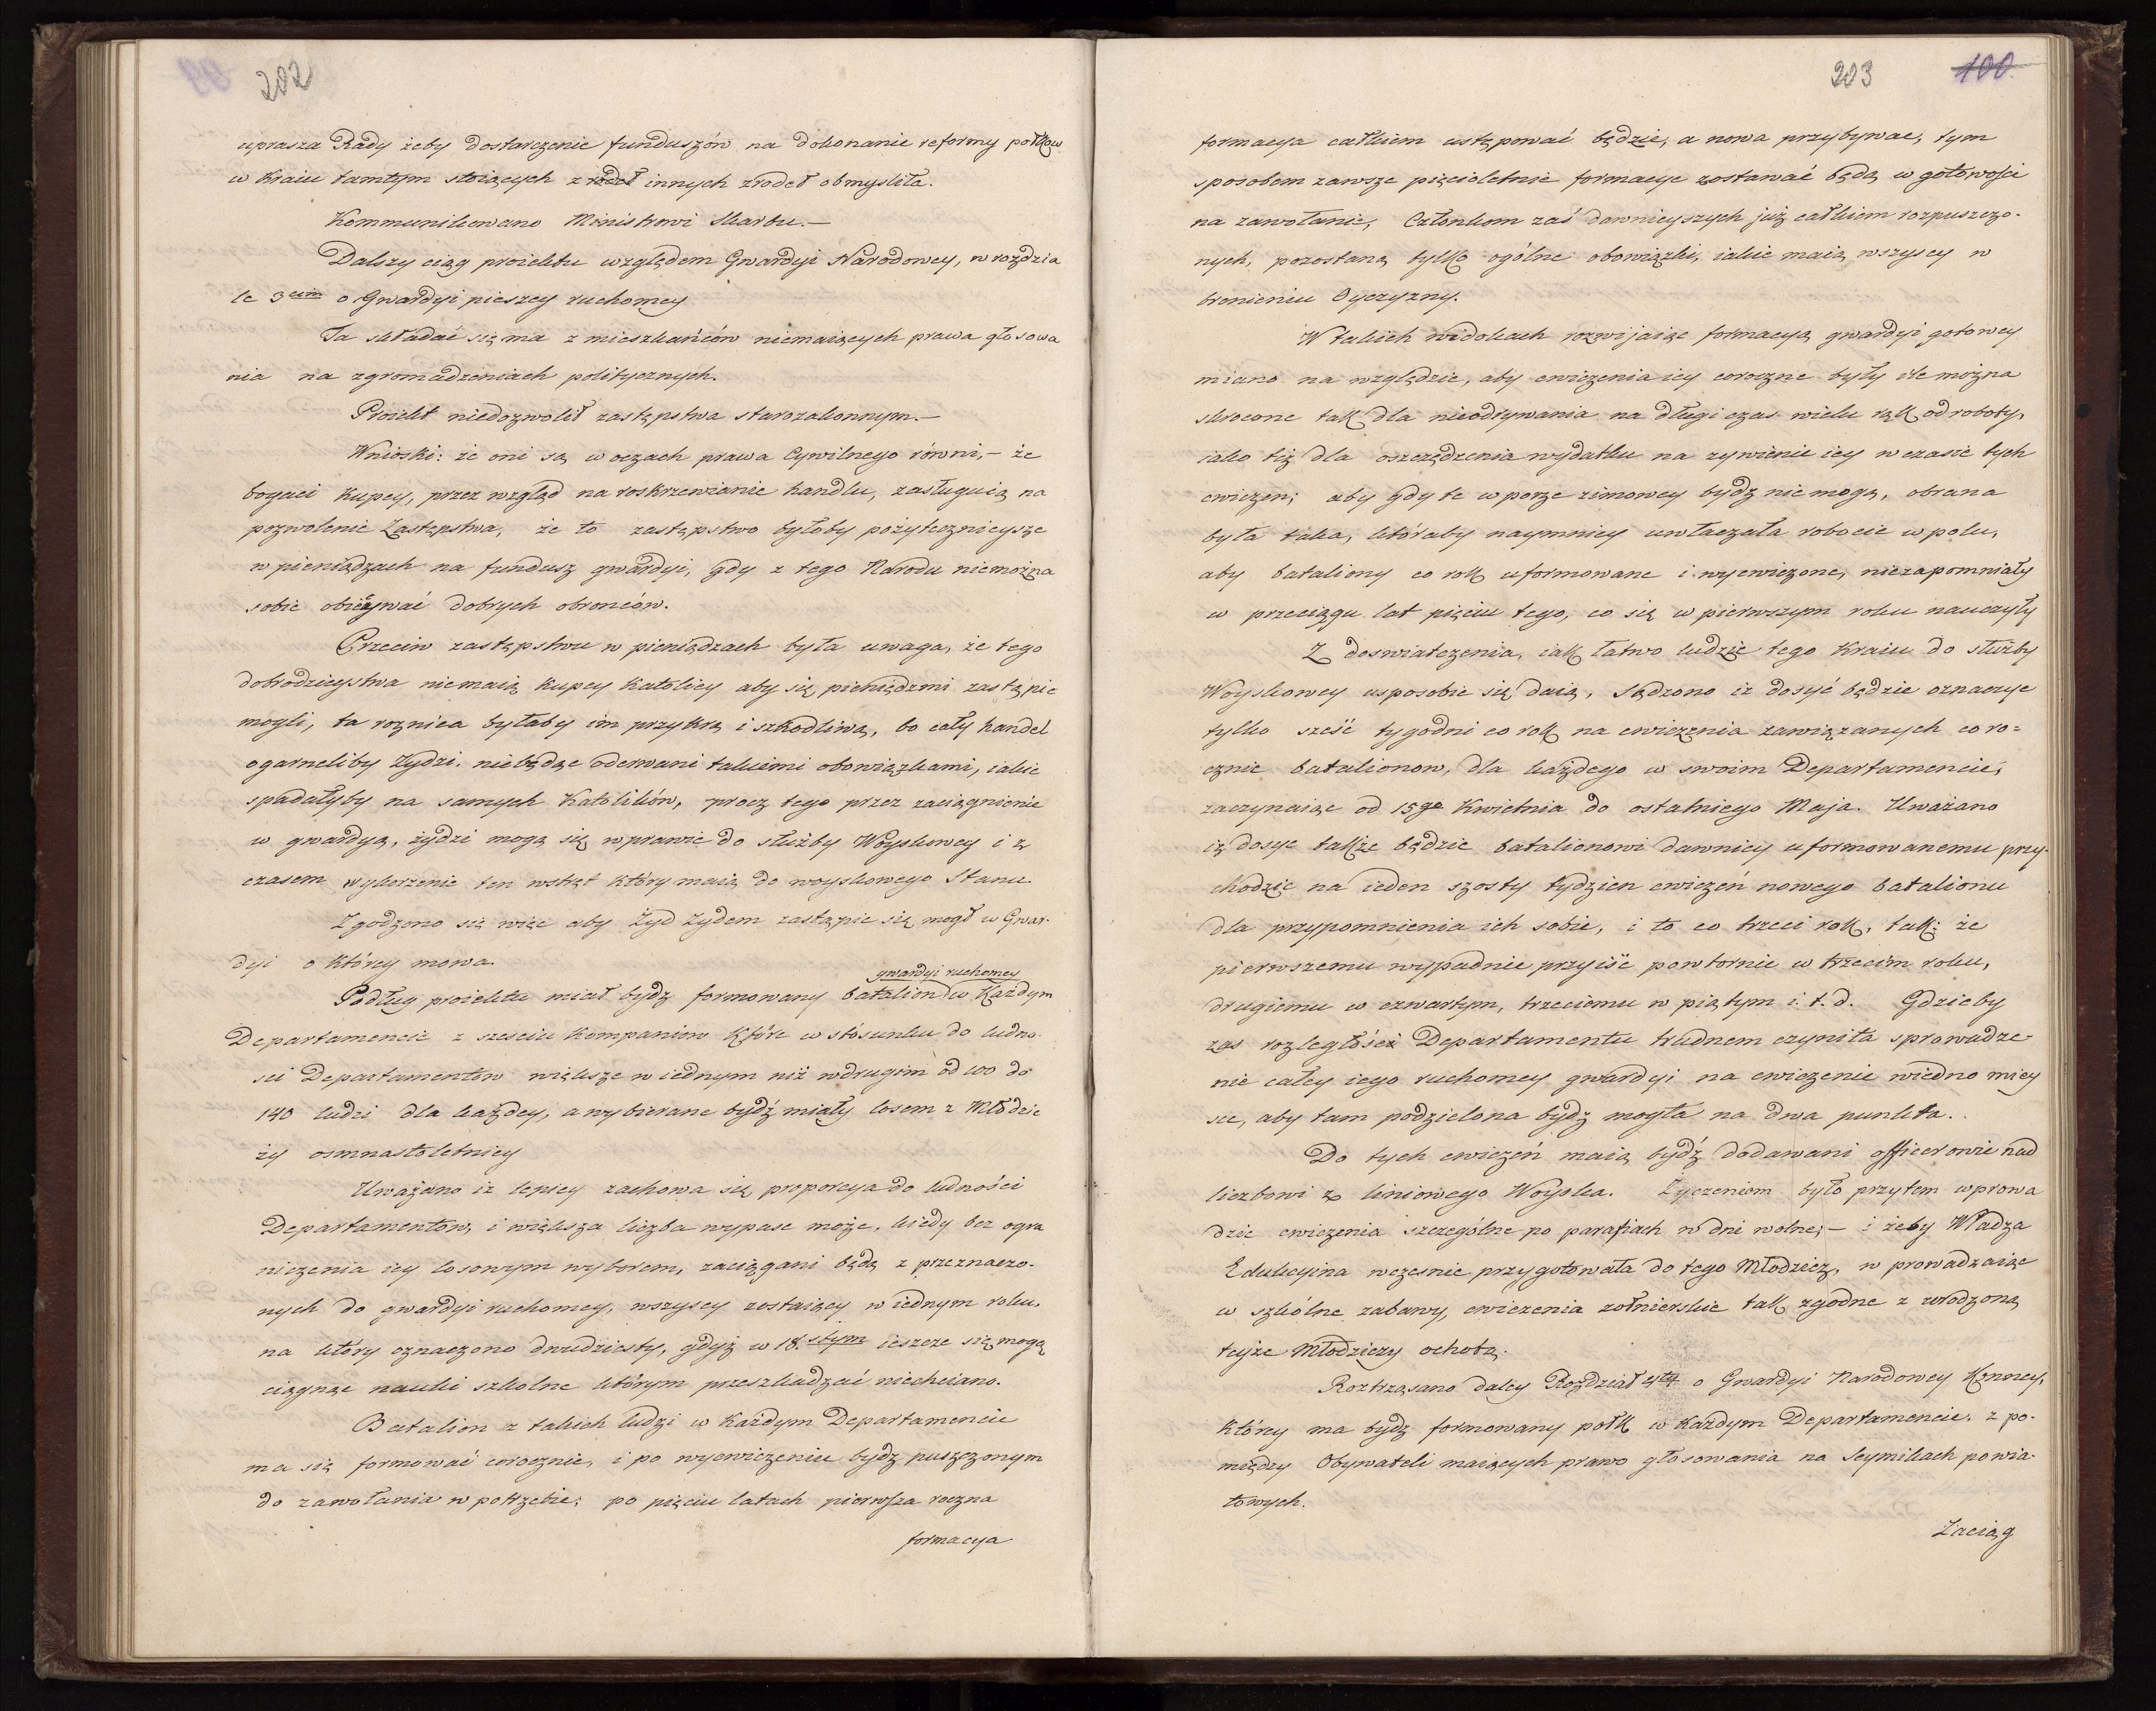 202
uprasza Rady żeby dostarczenie funduszów na dokonanie reformy połkow
w Kraiu tamtym stoiących z innych źrodeł obmysliła.
Kommunikowano Ministrowi Skarbu.—
Dalszy ciąg proiektu względem Gwardyi Narodowey, w rozdzia
le 3cim o Gwardyi pieszey ruchomey
Ta składać się ma z mieszkańców niemaiących prawa głosowa
nia na zgromadzeniach politycznych.
Proiekt niedozwolił zastępstwa starozakonnym.—
Wnioski: że oni są w oczach prawa Cywilnego równi,— że
bogaci Kupcy, przez wzgląd na roskrzewianie handlu, zasługuią na
pozwolenie Zastępstwa, że to zastępstwo byłoby pożytecznieysze
w pieniądzach na fundusz gwardyi, gdy z tego Narodu niemożna
sobie obiecywać dobrych obrońców.
Przeciw zastępstwu w pieniądzach była uwaga, że tego
dobrodzieystwa niemaią Kupcy Katolicy aby się pieniędzmi zastąpic
mogli, ta roznica byłaby im przykrą i szkodliwą, bo cały handel
ogarneliby Zydzi, niebędąc oderwani takiemi obowiązkami, iakie
spadałyby na samych Katolików, procz tego przez zaciągnienie
w gwardyą, żydzi mogą się wprawic do służby Woyskowey i z
czasem wykorzenic ten wstręt który maią do woyskowego Stanu.
Zgodzono się więc aby Żyd Żydem zastąpic się mogł w Gwar-
dyi o którey mowa.
gwardyi ruchomey
Podług proiektu miał bydz formowany batalion w Każdym
Departamencie z szesciu Kompaniow które w stósunku do ludno-
sci Departamentow większe w iednym niż w drugim od 100 do
140 ludzi dla każdey, a wybierane bydź miały losem z Młodzie
ży osmnastoletniey
Uważano iz lepiey zachowa się proporcya do ludności
Departamentow, i większa liczba wypasc może, kiedy bez ogra
niczenia iey losowym wyborem, zaciągani będą z przeznaczo-
nych do gwardyi ruchomey, wszyscy zostaiący w iednym roku,
na który oznaczono dwudziesty, gdyż w 18.stym ieszcze się mogą
ciągnąc nauki szkolne którym przeszkadzać niechciano.
Batalion z takich ludzi w Każdym Departamencie
ma się formować corocznie, i po wycwiczeniu bydz puszczonym
do zawołania w potrzebie; po pięciu latach pierwsza roczna
formacya
203
100.
formacya całkiem ustępować będzie, a nowa przybywac, tym
sposobem zawsze pięcioletnie formacye zostawać będą w gotowości
na zawołanie, Członkom zaś dawnieyszych już całkiem rozpuszczo-
nych, pozostaną tylko ogólne obowiązki, iakie maią wszyscy w
bronieniu Oyczyzny.
W takich widokach rozwijaiąc formacyą gwardyi gotowey
miano na względzie, aby cwiczenia iey coroczne były ile można
skrocone tak dla nieodrywania na długi czas wielu rąk od roboty,
iako tiż dla oszczędzenia wydatku na zywienie iey w czasie tych
cwiczen; aby gdy te w porze zimowey bydz nie mogą, obrana
była taka, któraby naymniey uwłaczała robocie w polu,
aby bataliony co rok uformowane i wycwiczone, niezapomniały
w przeciągu lat pięciu tego, co się w pierwszym roku nauczyły
Z doswiatczenia, iak łatwo ludzie tego Kraiu do służby
Woyskowey usposobic się daią, sądzono iz dosyć będzie oznaczyc
tylko sześć tygodni co rok na cwiczenia zawiązanych coro=
cznie batalionow, dla każdego w swoim Departamencie,
zaczynaiąc od 15go Kwietnia do ostatniego Maja. Uważano
iż dosyc także będzie batalionowi dawniey uformowanemu przy-
chodzic na ieden szosty tydzien cwiczeń nowego batalionu
dla przypomnienia ich sobie, i to co trzeci rok, tak: że
pierwszemu wypadnie przyiść powtornie w trzecim roku,
drugiemu w czwartym, trzeciemu w piątym i.t.d. Gdzieby
zas rozległości Departamentu trudnem czyniła sprowadze-
nie całey iego ruchomey gwardyi na cwiczenie w iedno miey
sce, aby tam podzielona bydz mogła na dwa punkta..
Do tych cwiczeń maią bydź dodawani officerowie nad
liczbowi z liniowego Woyska. Życzeniem było przytem wprowa
dzic cwiczenia szczególne po parafiach w dni wolne;— i żeby Władza
Edukcyina wczesnie przygotowała do tego Młodzież, w prowadzaiąc
w szkólne zabawy, cwiczenia zołnierskie tak zgodne z wrodzoną
teyże Młodzieży ochotą.
Roztrząsano daley Rozdział 4ty o Gwardyi Narodowey Konney,
którey ma bydz formowany połk w Każdym Departamencie, z po-
między Obywateli maiących prawo głosowania na Seymikach powia-
towych.
Zaciąg